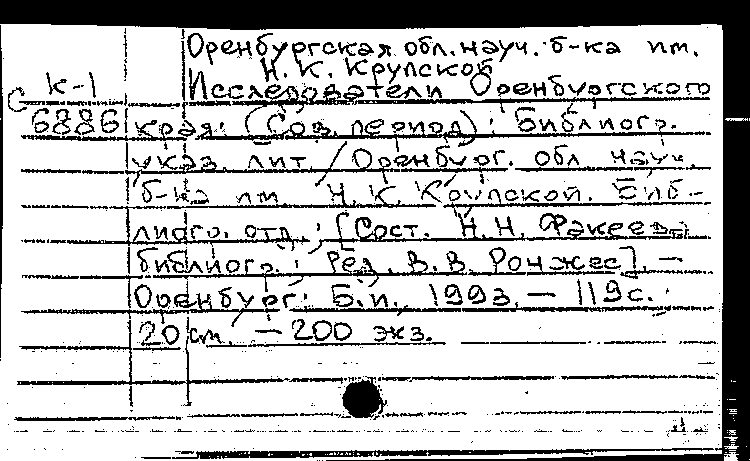 Оренбургская обл. науч. б-ка им.
Н. К. Крупской
К-1
Исследователи Оренбургского
С
6886
края: (Сов. период): Библиогр.
указ. лит. / Оренбург. обл. науч.
б-ка им. Н. К. Крупской. Биб-
лиогр. отд.; [Сост. Н. Н. Факеева
библиогр.; Ред. В. В. Ронжес]. —
Оренбург: Б. и., 1993. — 119 с.
20 см. — 200 экз.